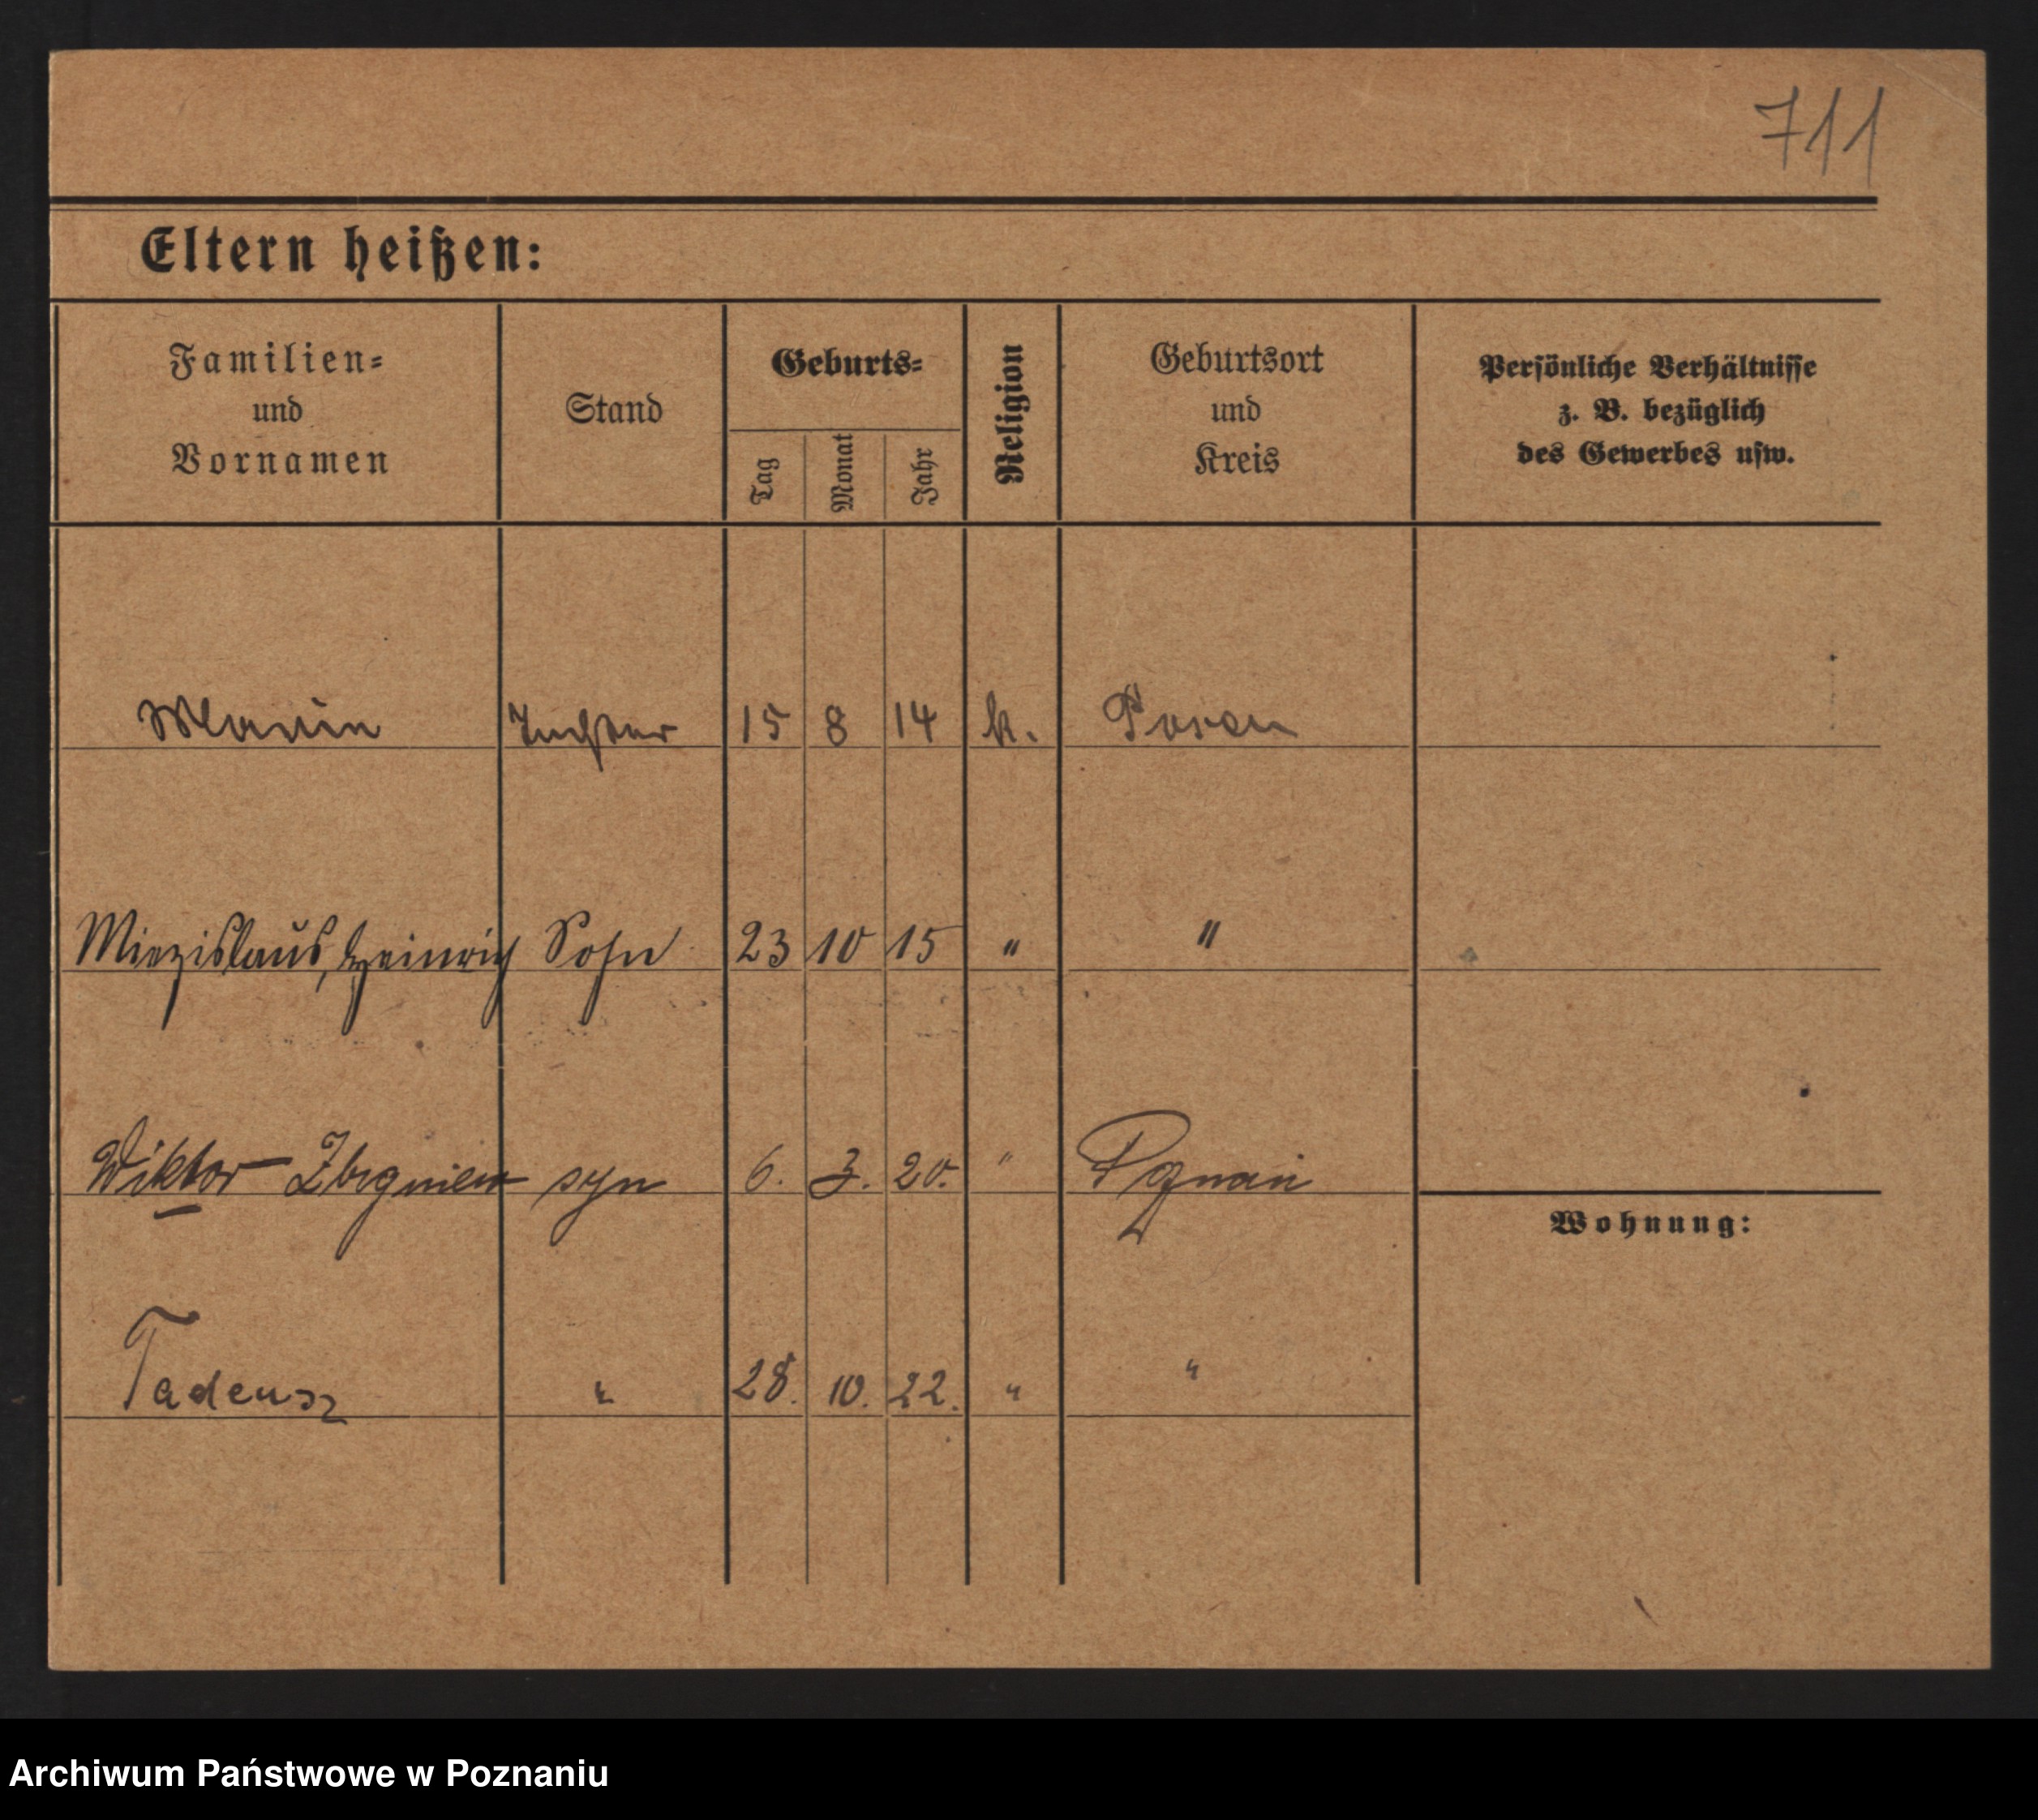 711
Eltern heißen:
Familien=
und
Vornamen
Stand
Geburts=
Tag
Monat
Jahr
Religion
Geburtsort
und
Kreis
Persönliche Verhältnisse
z. B. bezüglich
des Gewerbes usw.
Tochter 15 8 14 k. Posen
Miezislaus, Heinrich Sohn 23 10 15 " "
Wiktor - Zbigniew syn 6. 3. 20. " Poznań
Wohnung:
Tadeusz " 28. 10. 22. " "
Archiwum Państwowe w Poznaniu